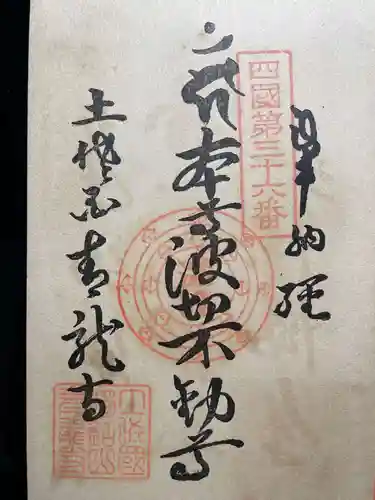 奉納経
四國第三十六番
本尊波切不動尊
土佐国青龍寺